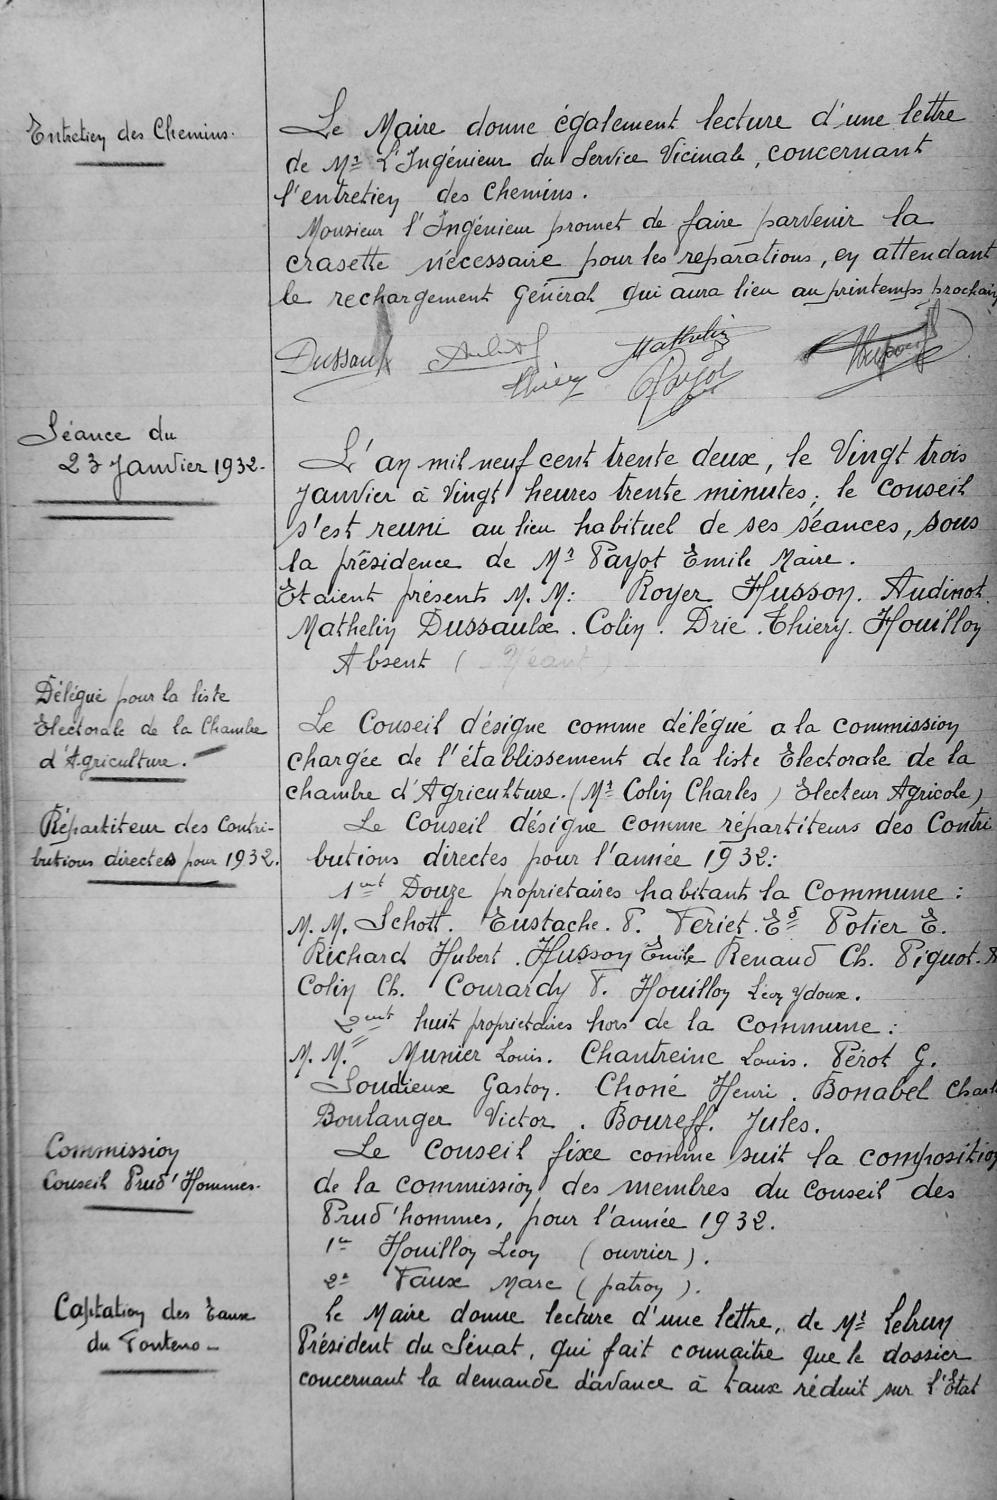 Entretien des Chemins.
Le Maire donne également lecture d'une lettre
de Mr L'Ingénieur du Service Vicinale, concernant
l'entretien des Chemins.
Monsieur l'Ingénieur promet de faire parvenir la
crasette nécessaire pour les reparations, en attendant
le rechargement Général qui aura lieu au printemps prochain
Dussaulx Mathelin
Thiéry Payot
Séance du
23 Janvier 1932.
L'an mil neuf cent trente deux, le Vingt trois
Janvier à Vingt heures trente minutes, le Conseil
s'est reuni au lieu habituel de ses séances, sous
la présidence de Mr Payot Emile Maire.
Etaient présents M. M: Royer Husson. Audinot.
Mathelin Dussaulx. Colin. Drie. Thiery. Houillon
Absent (Néant)
Délégué pour la liste
Electorale de la Chambre
d'Agriculture.
Le Conseil désigne comme délégué a la commission
chargée de l'établissement de la liste Electorale de la
chambre d'Agriculture. (Mr Colin Charles) Electeur Agricole)
Répartiteur des Contri-
butions directes pour 1932.
Le Conseil désigne comme répartiteurs des Contri
butions directes pour l'année 1932:
1ent Douze proprietaires habitant la Commune:
M. M. Schott. Eustache. P. Feriet. Ed Potier E.
Richard Hubert. Husson Emile Renaud Ch. Piguot.
Colin Ch. Courardy F. Houillon Léon Ydoux.
2ent huit proprietaires hors de la Commune:
M. M. Munier Louis. Chantreine Louis. Pérot G.
Soudieux Gaston. Choné Henri. Bonabel Charl
Boulanger Victor. Boureff. Jules.
Commission
Conseil Prud'Hommes.
Le Conseil fixe comme suit la composition
de la commission des membres du Conseil des
Prud'hommes, pour l'année 1932.
1er Houillon Léon (ouvrier).
2e Faux Marc (patron).
Captation des Eaux
du Fonteno-
le Maire donne lecture d'une lettre, de Mr Lebrun
Président du Sénat, qui fait connaitre que le dossier
concernant la demande d'avance à taux réduit sur l'Etat